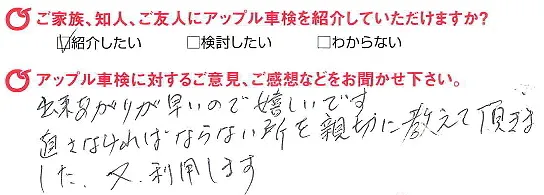 ご家族、知人、ご友人にアップル車検を紹介していただけますか?
☑紹介したい □検討したい □わからない
アップル車検に対するご意見、ご感想などをお聞かせ下さい。
出来あがりが早いので嬉しいです
直さなければならない所を親切に教えて頂きま
した、又、利用します